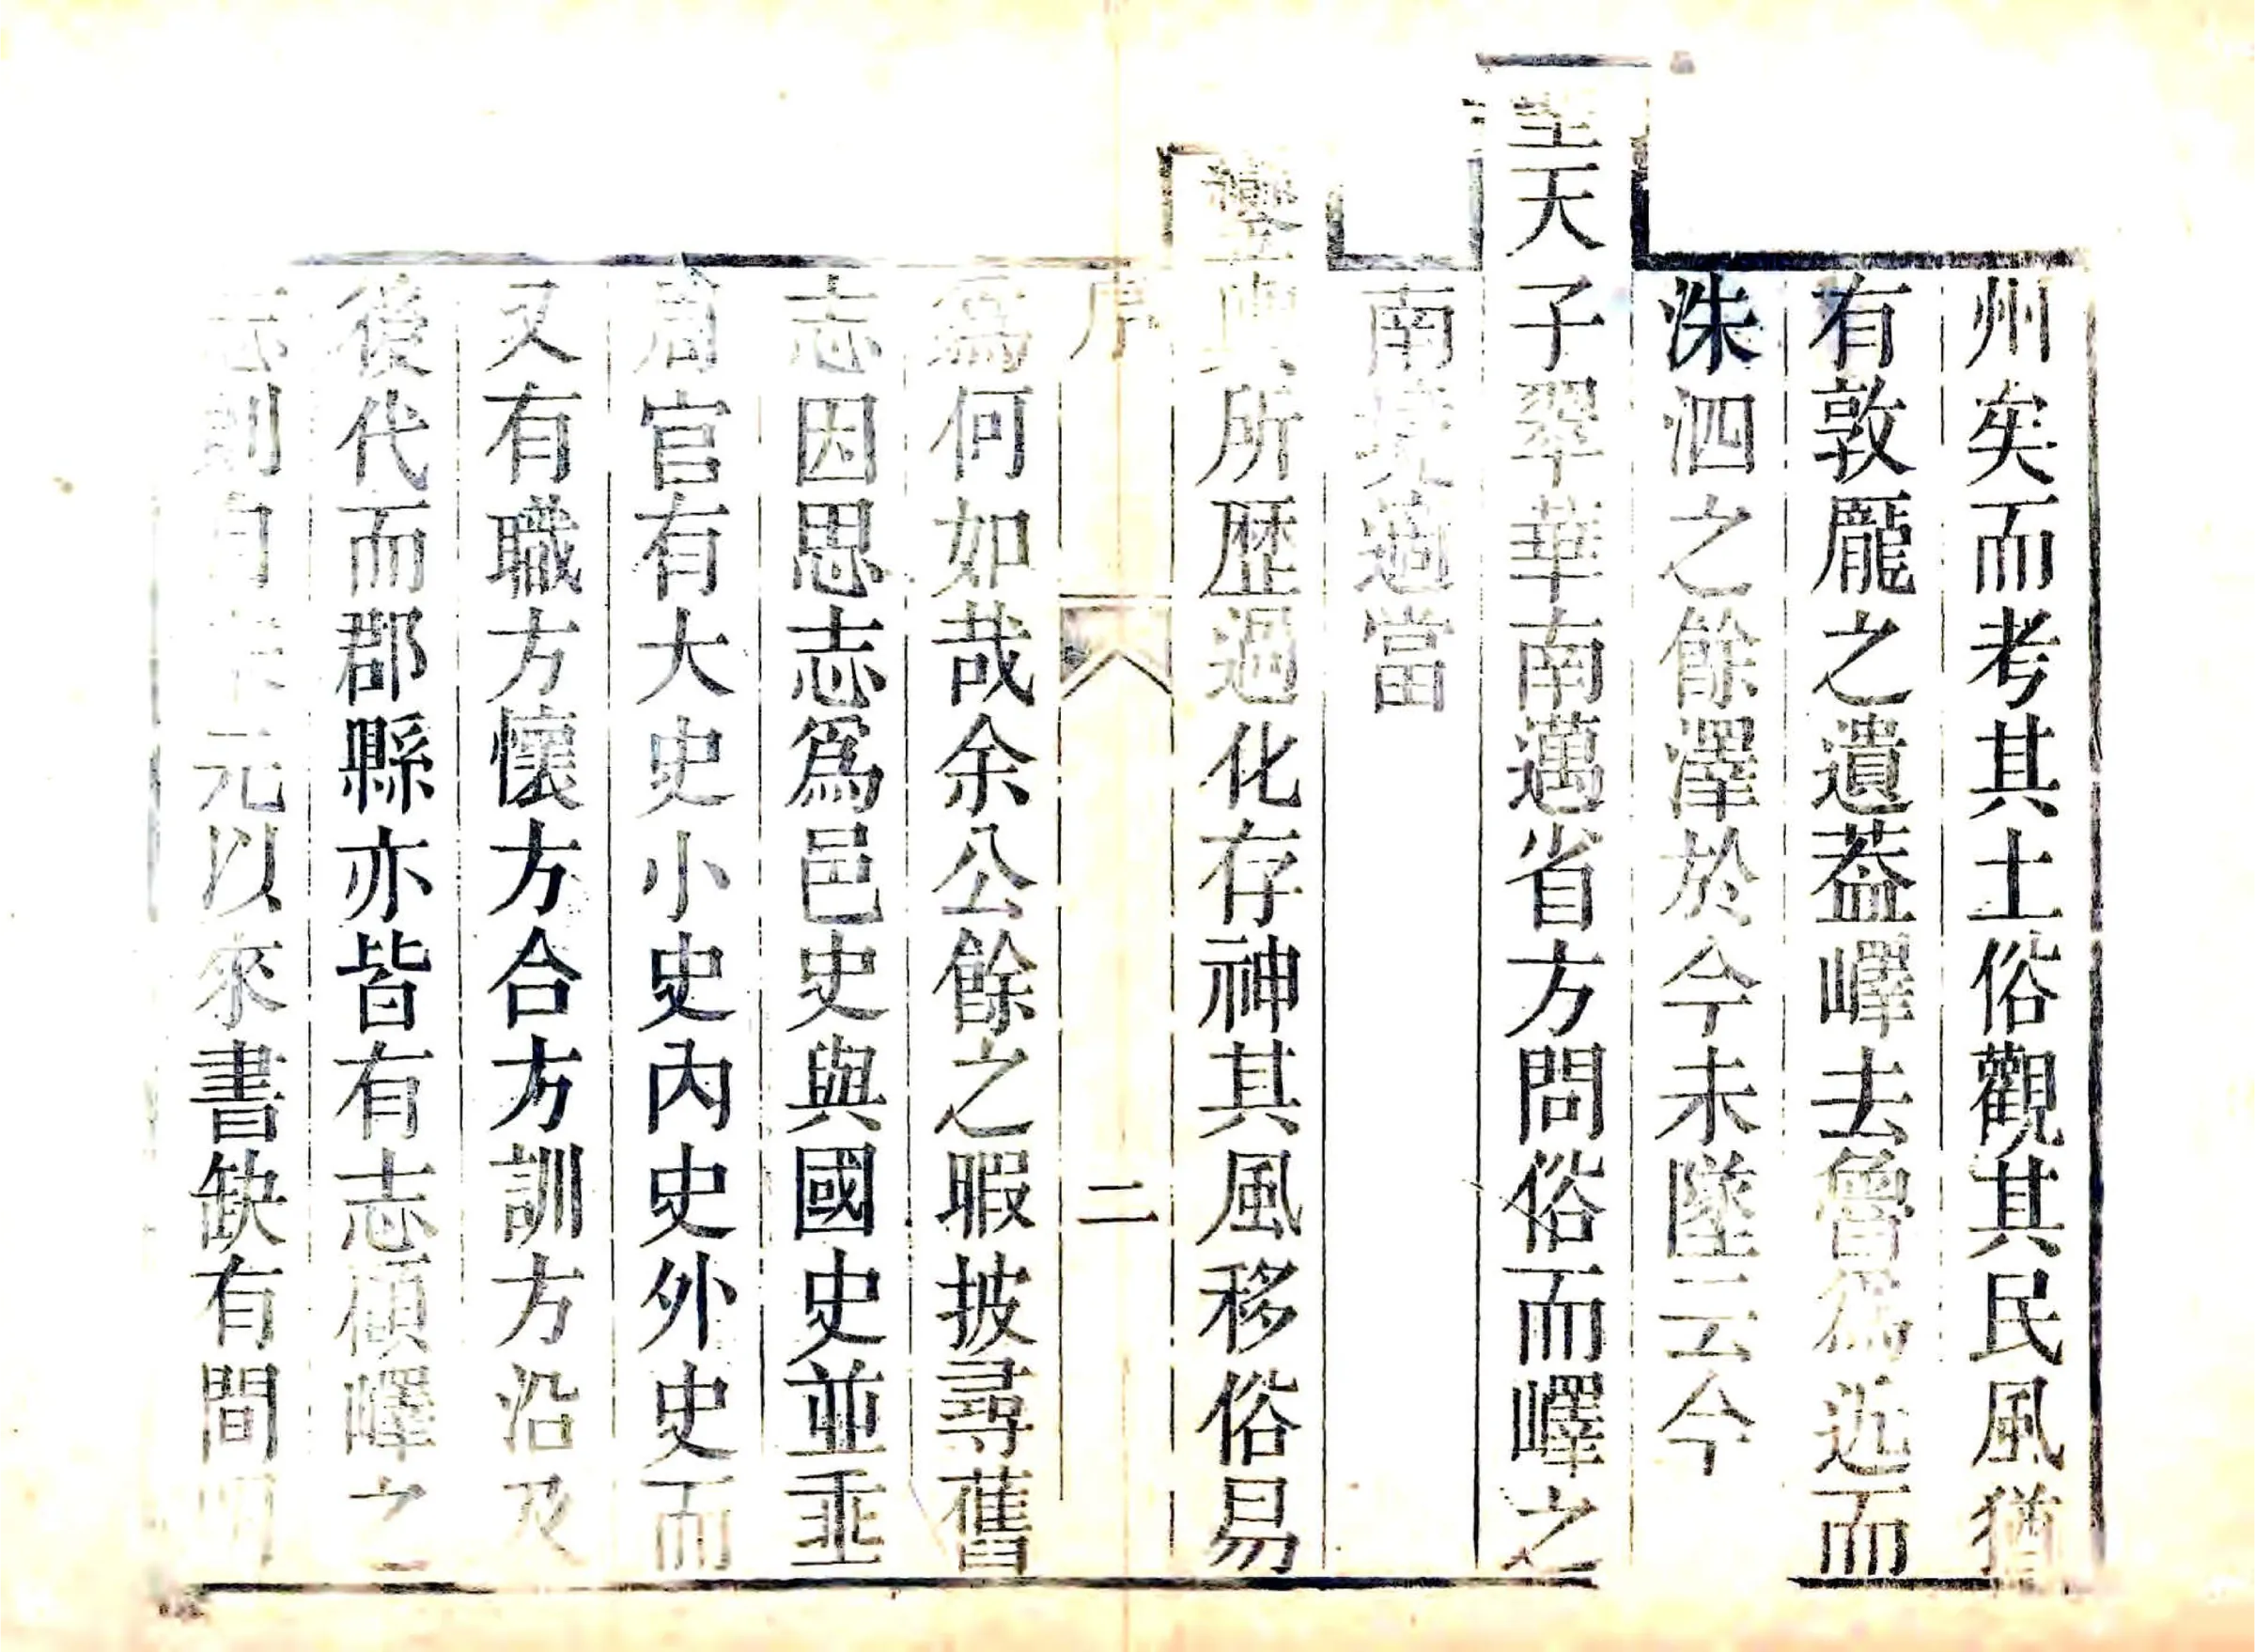 州矣而考其土俗觀其民風猶
有敦龐之遺葢嶧去魯爲近而
洙泗之餘澤於今未墜云今
聖天子翠華南邁省方問俗而嶧之
南境適當
鑾輿所歴過化存神其風移俗易
序
二
爲何如哉余公餘之暇披尋舊
志因思志爲邑史與國史並埀
周官有大史小史內史外史而
又有職方懷方合方訓方沿及
後代而郡縣亦皆有志顧嶧之
志則自 元以來書缺有間明